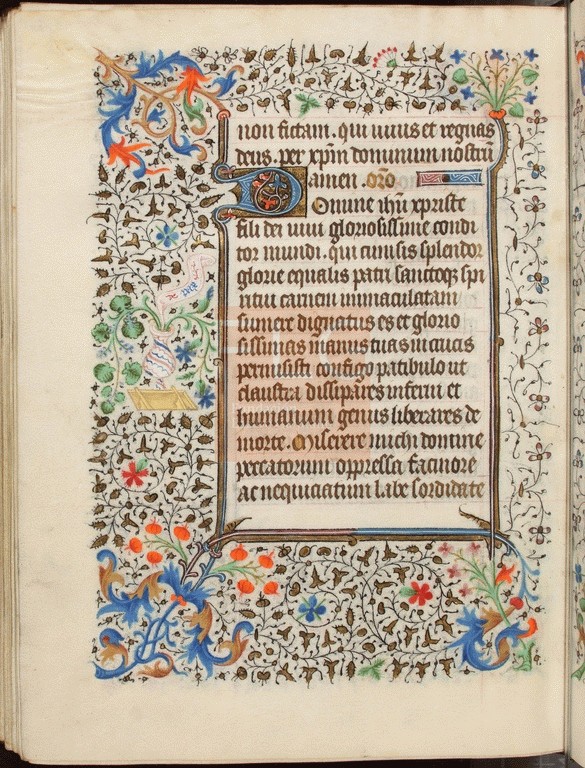 non fictam. qui uiuis et regnas
deus. per xp̄m dominum nostrū
amen. orō
Domine ihū xpriste
fili dei uiui gloriosissime condi
tor mundi. qui cum sis splendor
glorie equalis patri sanctoqꝫ spi
ritui carnem immaculatam
sumere dignatus es et glorio
sissimas manus tuas in crucis
permisisti configo patibulo ut
claustra dissipares inferni et
humanum genus liberares de
morte. Miserere michi domine
peccatorum oppressa facinore
ac nequiciatum labe sordidate